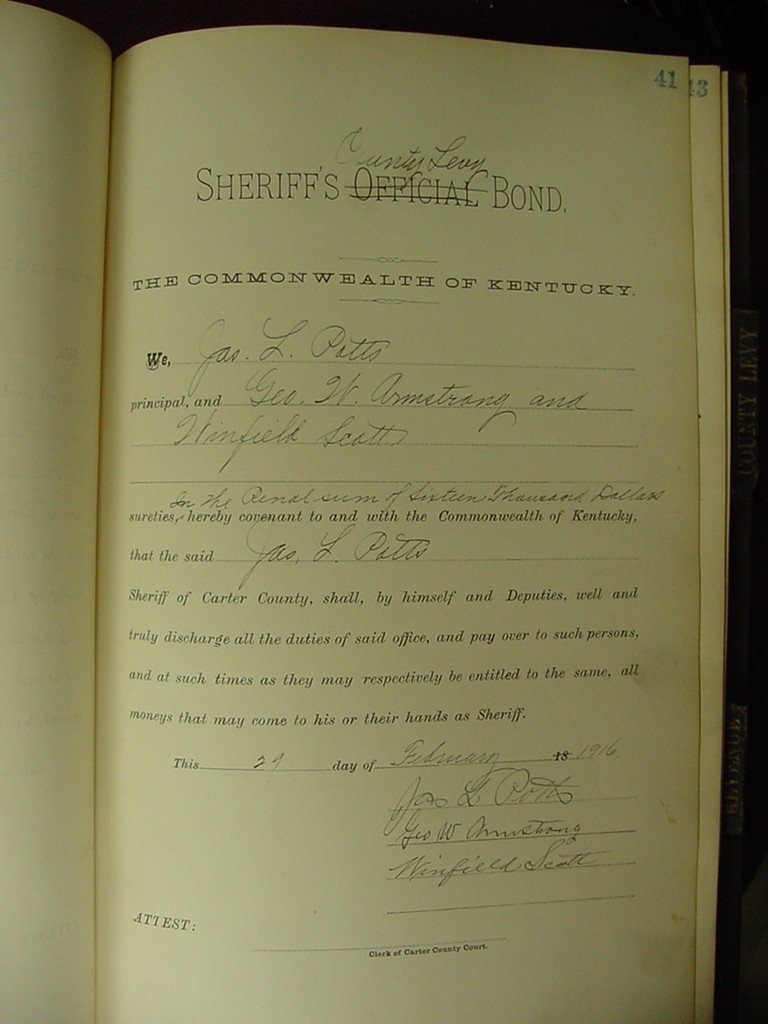 41 43
County Levy
SHERIFF'S OFFICIAL BOND.
THE COMMONWEALTH OF KENTUCKY.
We, Jas. L. Potts
principal, and Geo. W. Armstrong and
Winfield Scott
In the Penal sum of Sixteen Thousand Dollars
sureties, hereby covenant to and with the Commonwealth of Kentucky,
that the said Jas. L. Potts
Sheriff of Carter County, shall, by himself and Deputies, well and
truly discharge all the duties of said office, and pay over to such persons,
and at such times as they may respectively be entitled to the same, all
moneys that may come to his or their hands as Sheriff.
This 29 day of February 18 1916.
Jas L Potts
Geo W Armstrong
Winfield Scott
ATTEST:
Clerk of Carter County Court.
COUNTY LEVY
REVENUE